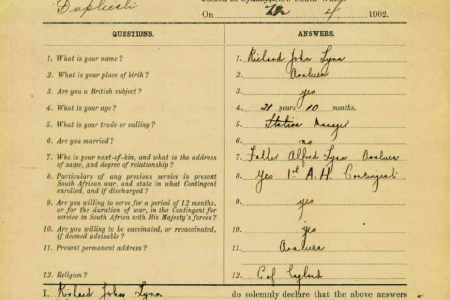 Duplicate
On 4 1902.
QUESTIONS. ANSWERS.
1. What is your name? 1. Richard John Lynn
2. What is your place of birth? 2. Araluen
3. Are you a British subject? 3. yes
4. What is your age? 4. 21 years 10 months.
5. What is your trade or calling? 5. Station Manager
6. Are you married? 6. no
7. Who is your next-of-kin, and what is the address of name, and degree of relationship? 7. Father Alfred Lynn Araluen
8. Particulars of any previous service in present South African war, and state in what Contingent enrolled, and if discharged? 8. Yes 1st A. H. Contingent
9. Are you willing to serve for a period of 12 months, or for the duration of war, in the Contingent for service in South Africa with His Majesty's forces? 9. yes
10. Are you willing to be vaccinated, or revaccinated, if deemed advisable? 10. yes
11. Present permanent address? 11. Araluen
12. Religion? 12. C of England
I, Richard John Lynn do solemnly declare that the above answers